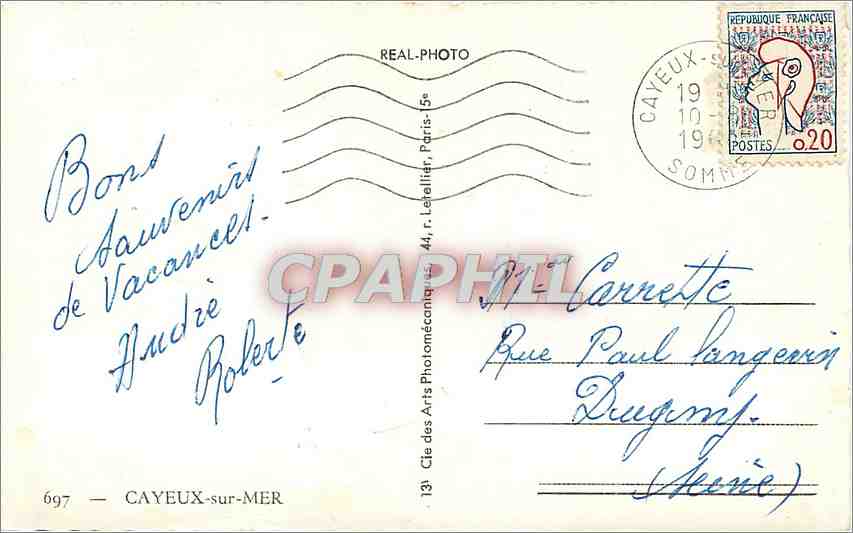 REAL-PHOTO
RÉPUBLIQUE FRANÇAISE
POSTES 0,20
CAYEUX-SUR-MER
19
10
SOMME
Bons
souvenirs
de Vacances.
André
Roberte
CPAPHIL
Carrette
Rue Paul Langevin
Dugny.
(Seine)
131 Cie des Arts Photomécaniques, 44, r. Letellier, Paris-15e
697 — CAYEUX-sur-MER